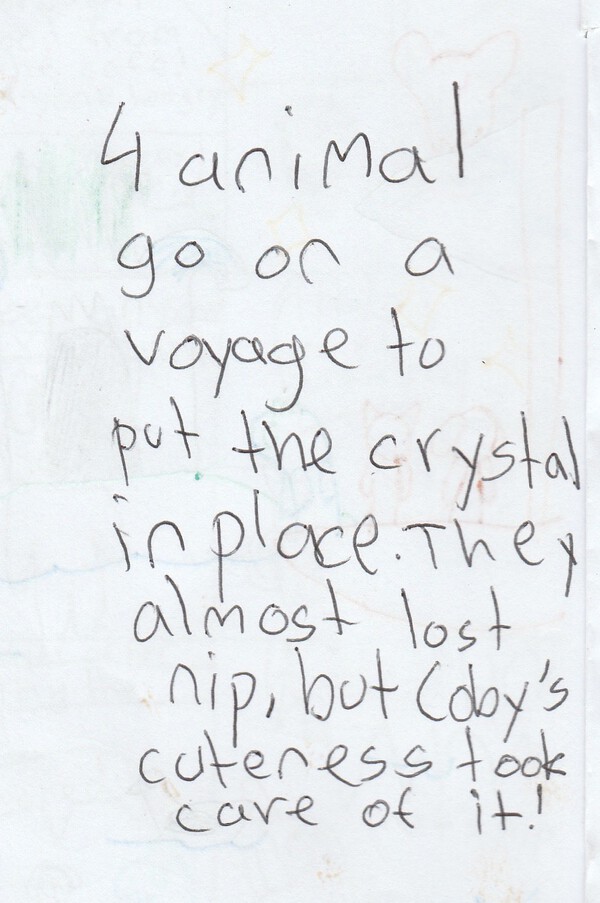 4 animal
go on a
voyage to
put the crystal
in place. They
almost lost
nip, but Coby's
cuteness took
care of it!